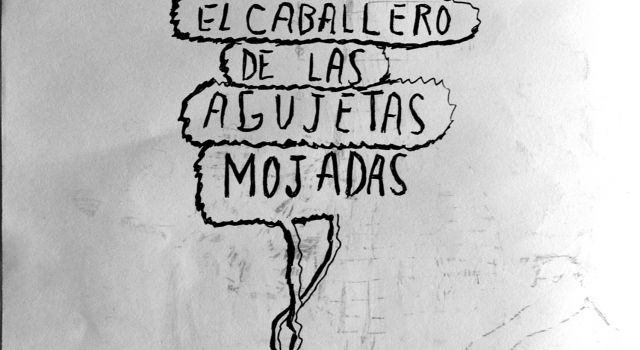 EL CABALLERO
DE LAS
AGUJETAS
MOJADAS